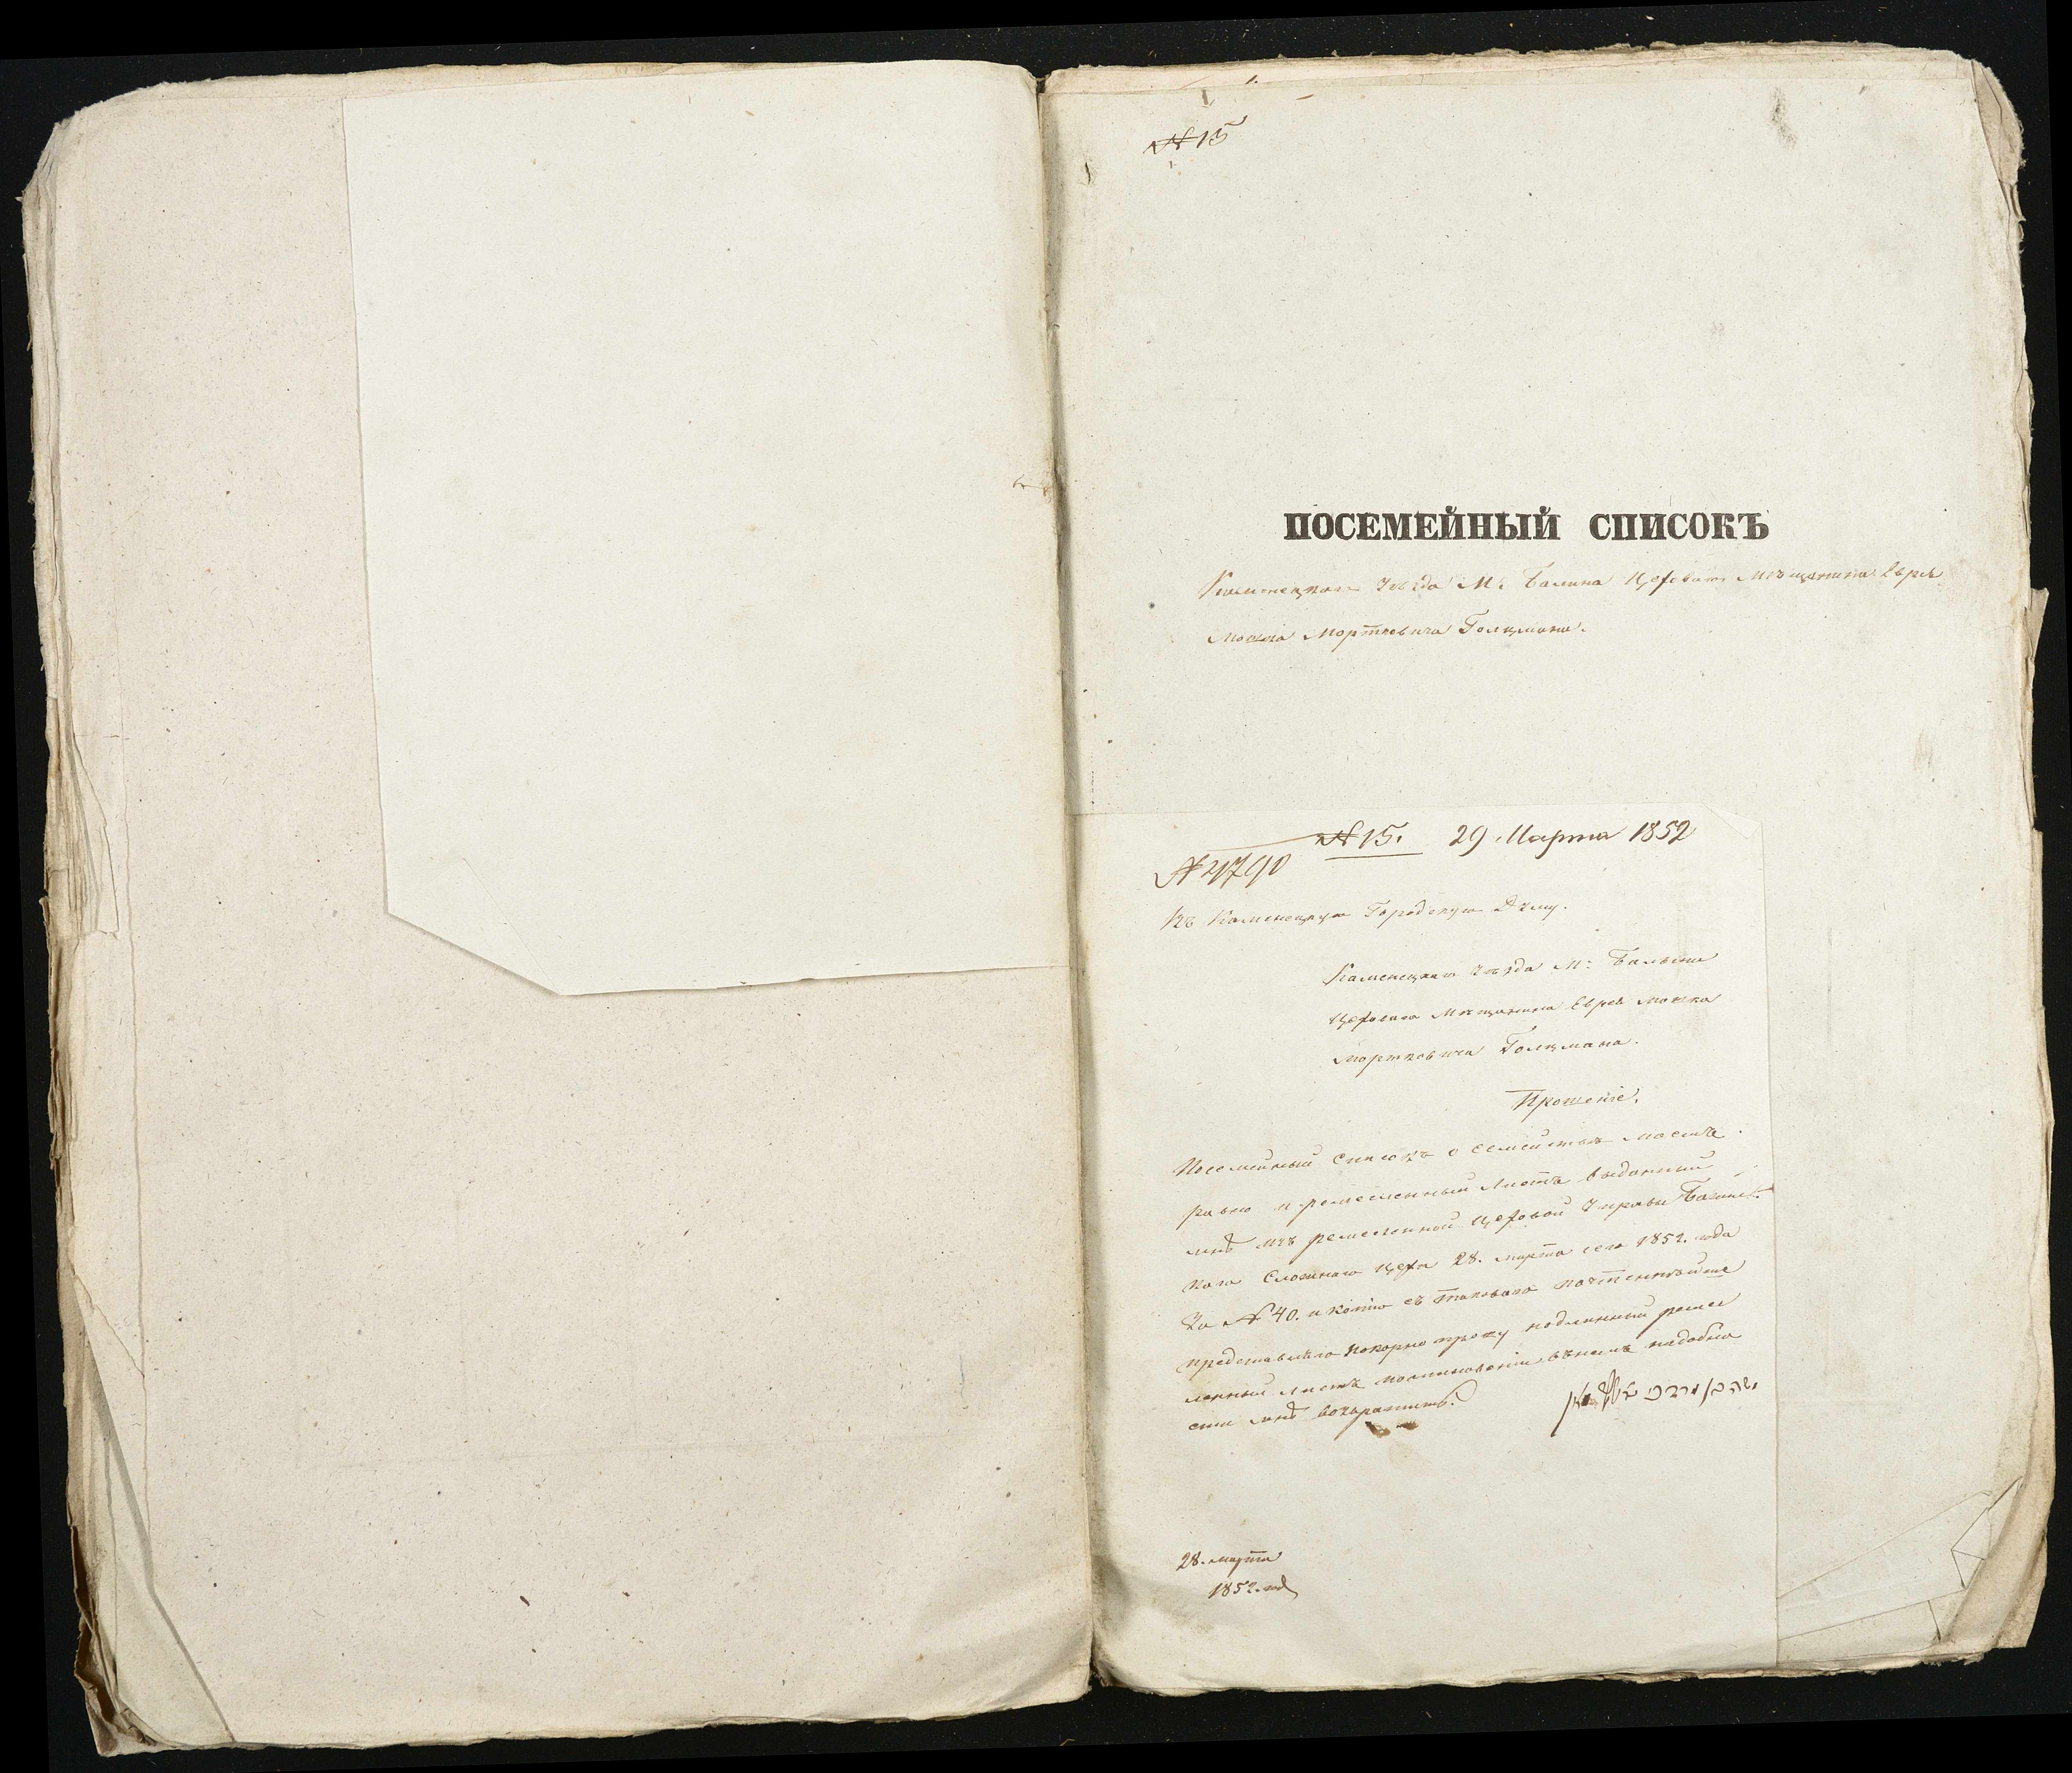 1.
№ 15
ПОСЕМЕЙНЫЙ СПИСОКЪ
Каменецкаго Уѣзда М. Балина Цеховаго Мѣщанина Еврея
Мошка Мортковича Голцмана.
№ 15. 29 Марта 1852
Въ Каменецкую Городскую Думу.
Каменецкаго Уѣзда М: Балина
Цеховаго Мѣщанина Еврея Мошка
Мортковича Голцмана.
Прошеніе.
Посемейный Списокъ о семействѣ моемъ
равно и ремесленный Листъ выданный
мнѣ изъ ремесленной цеховой Управы Балинс-
каго Сложнаго Цеха 28. марта сего 1852. года
За № 40. и копію съ таковаго почтеннѣйше
представляю покорно прошу подлинный ремес
ленный листъ по миновеніи въ немъ надобно
сти мнѣ возвратить.
28. марта
1852. год